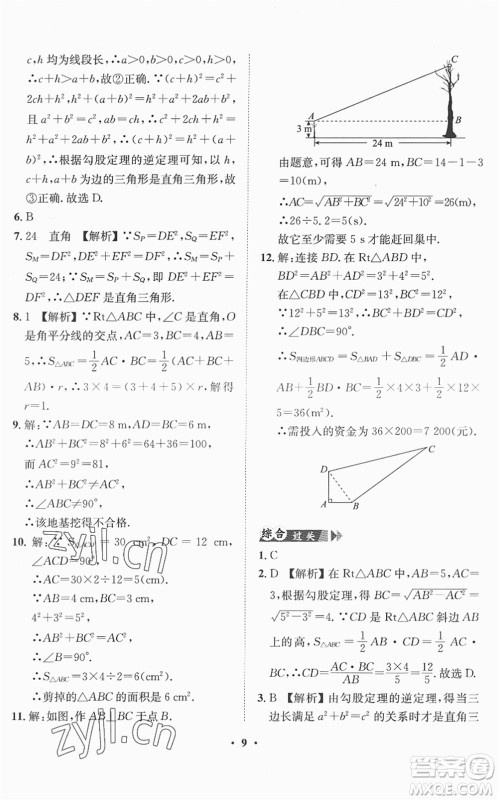 c,h 均为线段长,∴a>0,b>0,c>0,h>
0,故②正确. ∵(c+h)²-h²=c²+
2ch+h²-h²=c²+2ch=c(c+2h),
且 a²+b²=c²,∴(a+b)²=a²+2ab+
b²=c²+2ch,∴(c+h)²=c²+2ch+
h²=h²+(a+b)²,∴h²+(a+b)²=(c+
h)²,∴根据勾股定理的逆定理可知以
h,c+h,a+b为边的三角形是直角三角形,故
③正确. 故选D.
6. B
7. 24 直角 【解析】∵S_P=DE²,S_Q=EF²,
S_M=DF²,∴S_M=S_P+S_Q=9+15=24,
∵S_M=S_P+S_Q,∴DE²+EF²=
DF²,∴△DEF是直角三角形.
8. 1 【解析】∵Rt△ABC中,∠C是直角,O
是角平分线的交点,AC=3,BC=4,AB=
5,∴S△ABC=1/2 AC·BC=1/2(AC+BC+
AB)·r,∴3×4=(3+4+5)×r,解得
r=1.
9. 解:∵AB=DC=8 m,AD=BC=6 m,
∴AB²+BC²=8²+6²=64+36=100.
∵AC²=9²=81,
∴AB²+BC²≠AC²,
∴∠ABC≠90°,
∴该地基挖得不合格.
10. 解:∵S△ACD=30 cm²,DC=12 cm,
∠ACD=90°,
∴AC=30×2÷12=5(cm).
∵AB=4 cm,BC=3 cm,
4²+3²=5²,
∴∠ABC=90°,
∴S△ABC=3×4÷2=6(cm²).
∴剪掉的△ABC的面积是6 cm².
11. 解:如图,作AB⊥ 于点B.
C
A
B
3 m
24 m
由题意,可得 AB=24 m,BC=14-1-3
=10(m),
∴AC=√(AB²+BC²)=√(24²+10²)=26(m),
∴26÷5.2=5(s).
故它至少需要5 s才能赶回巢中.
12. 解:连接BD. 在Rt△ABD中,
BD²=AB²+AD²=3²+4²=5².
在△CBD中,CD²=13²,BC²=12²,
∵12²+5²=13²,
∴BC²+BD²=CD²,
∴∠DBC=90°,
∴S四边形ABCD=S△BAD+S△DBC=1/2·AD·
AB+1/2 DB·BC=1/2×4×3+1/2×12×
5=36(m²).
∴需投入的资金为36×200=7 200(元).
C
D
A
B
综合过关
1. C
2. D 【解析】在Rt△ABC中,AB=5,AC=
3,根据勾股定理,得BC=√(AB²-AC²)=
√(5²-3²)=4. ∵CD是Rt△ABC斜边AB
上的高,∴S△ABC=1/2 AC·BC=1/2 AB·
CD,∴CD=AC·BC/AB=12/5. 故选D.
3. B 【解析】由勾股定理可知,能够得到三
边长满足a²+b²=c²的关系时才是直角三
· 9 ·
zyjl.cn
zyjl.cn
答案圈
MXQE.COM